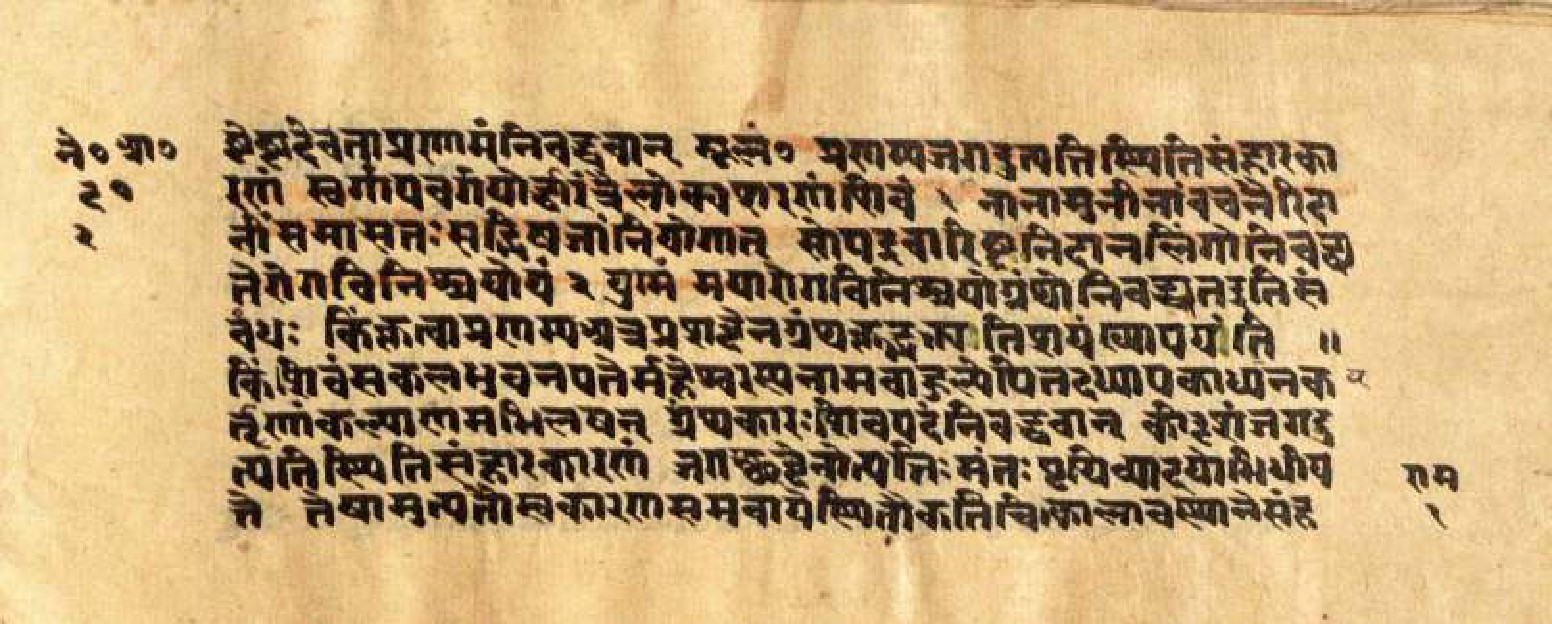 ष्टेष्टदेवताप्रणामंनिवद्धवान् मूलं० प्रणम्यजगदुत्पत्तिस्थितिसंहारका
रणं स्वर्गापवर्गयोर्द्वारंत्रैलोक्यशरणंशिवं १ नानामुनीनांवचनैरिदा
नींसमासतःसद्भिषजांनियोगात् सोपद्रवारिष्टनिदानलिंगोनिवद्ध्य
तेरोगविनिश्चयोयं २ युग्मं मयारोगविनिश्चयोग्रंथोनिवद्ध्यतइतिसं
वंधः किंकृत्वाप्रणम्यअत्रप्रशब्देनग्रंथकृद्भक्त्यतिशयंख्यापयति ॥
किंशिवंसकलभुवनपतेर्महेश्वरस्यनामवाहुल्येपितदध्यापकाध्ययनक
र्तृणांकल्याणमभिलषन् ग्रंथकारःशिवपदंनिवद्धवान् कीदृशंजगदु
त्पत्तिस्थितिसंहारकारणं जगच्छब्देनोत्पत्तिःमंतःपृथिव्यादयोभिधीय
ते तेषामुत्पत्तौस्वकारणसमवायेस्थितौकतिचित्कालावस्थानेसंह
राम
१